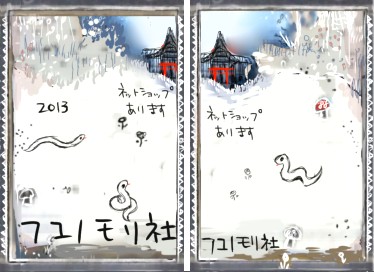 2013
ネットショップ
あります
フユノモリ社
ネットショップ
あります
フユノモリ社